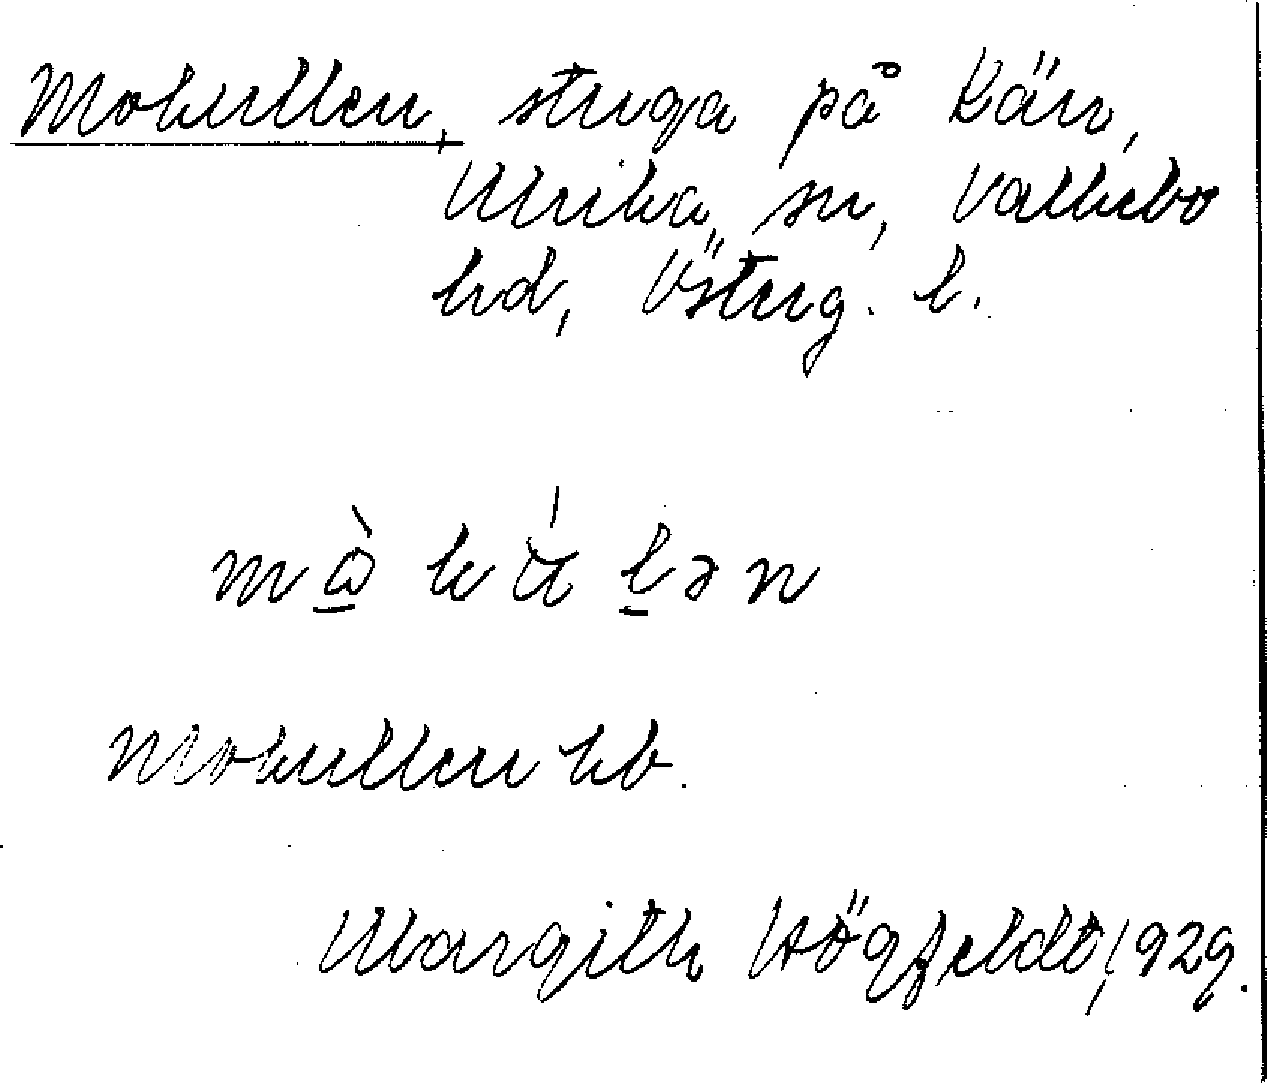 Mokullen, stuga på Kärr,
Ulrika sn, Valkebo
hd, Österg. l.
mὼ̲ kú l̲ən
Mokullen kb.
Margith Högfeldt, 1929.